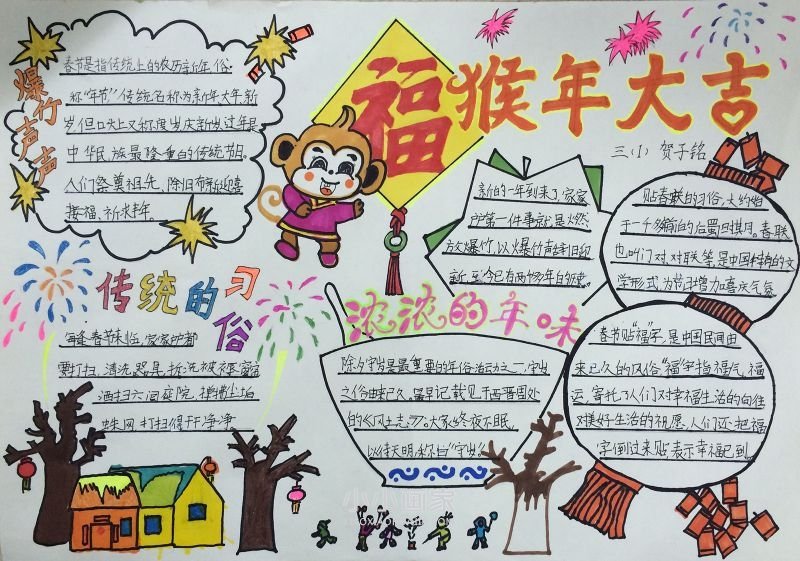 福
猴年大吉
三(1) 贺子铭
爆竹声声
春节是指传统上的农历新年,俗
称"年节",传统名称为新年、大年、新
岁,但口头上又称度岁、庆新岁、过年是
中华民族最隆重的传统节日。
人们祭奠祖先、除旧布新、迎喜
接福、祈求丰年。
新的一年到来了,家家
户第一件事就是燃
放爆竹,以爆竹声辞旧迎
新,至今已有两千多年的历史。
贴春联的习俗,大约始
于一千多年前的后蜀时期。春联
也叫门对、对联等,是中国特有的文
学形式,为节日增加喜庆气氛
传统的习俗
每逢春节来临,家家户户都
要打扫,清洗器具,拆洗被褥窗帘
洒扫六闾庭院,掸拂尘垢
蛛网,打扫得干干净净
浓浓的年味
除夕守岁是最重要的年俗活动之一,守岁
之俗由来已久,最早记载见于西晋周处
的《风土志》:大家终夜不眠,
以待天明,称曰"守岁"
春节贴"福"字,是中国民间由
来已久的风俗,"福"字指福气、福
运,寄托了人们对幸福生活的向往
对美好生活的祝愿,人们还把"福
字倒过来贴,表示幸福已到
小小画家